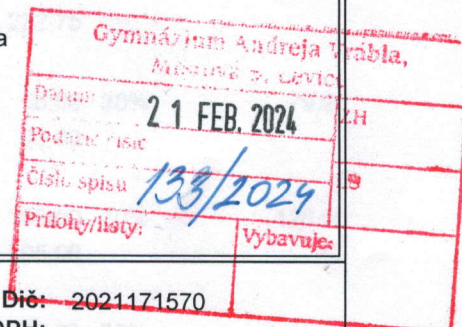 a
Gymnázium Andreja Vrábla,
Levice
Dátum:
21 FEB. 2024
ZH
Podacie číslo
Číslo spisu 133/2024
Prílohy/listy:
Vybavuje:
Dič: 2021171570
DPH: